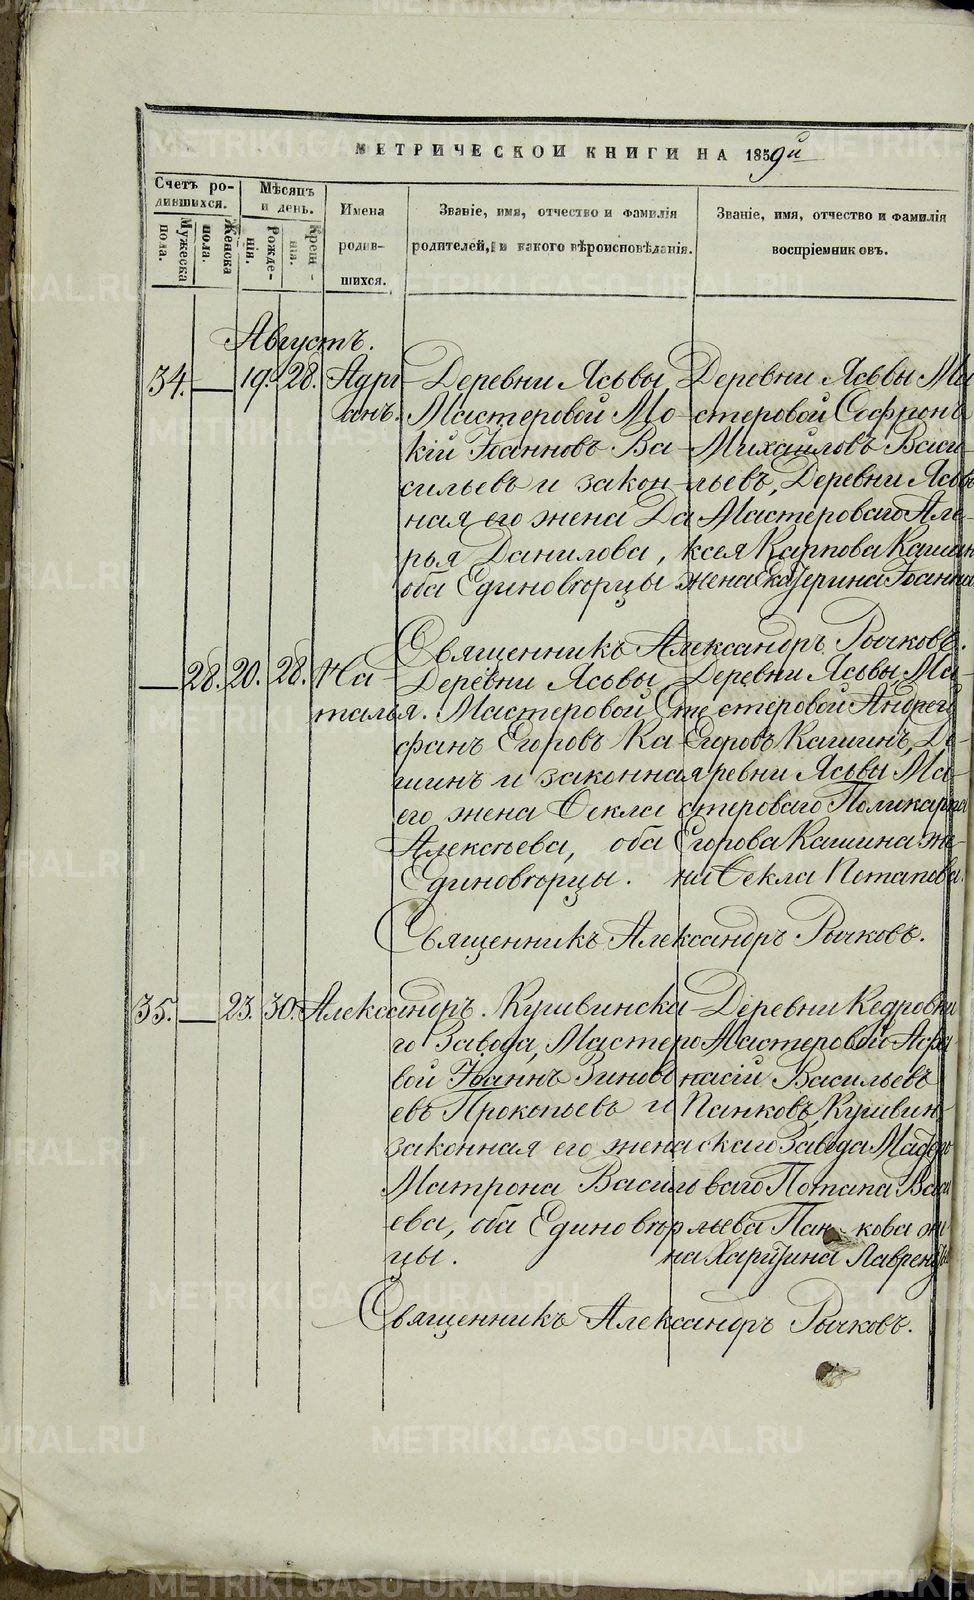 МЕТРИЧЕСКОЙ КНИГИ НА 1859й
Счетъ родившихся.
Мужеска пола.
Женска пола.
Мѣсяцъ и день.
Рожденія.
Крещенія.
Имена родившихся.
Званіе, имя, отчество и фамилія
родителей, и какого вѣроисповѣданія.
Званіе, имя, отчество и фамилія
воспріемниковъ.
Августъ.
34. — 19. 28. Адрі-
анъ.
Деревни Ясьвы
Мастеровой Мо-
кій Іоанновъ Ва-
сильевъ и закон-
ная его жена Да
рья Данилова,
оба Единовѣрцы
Деревни Ясьвы Ма
стеровой Софронъ
Михайловъ Васи-
льевъ, Деревни Ясьв
Мастероваго Але-
ксея Карпова Кашин
жена Екатерина Іоанна
Священникъ Александръ Рычковъ.
— 28. 20. 28. На-
талья.
Деревни Ясьвы
Мастеровой Сте
фанъ Егоровъ Ка
шинъ и законная
его жена Ѳекла
Алексѣева, оба
Единовѣрцы.
Деревни Ясьвы Ма-
стеровой Андрей
Егоровъ Кашинъ, Де-
ревни Ясьвы Ма-
стероваго Поликарпа
Егорова Кашина же-
на Ѳекла Потапова.
Священникъ Александръ Рычковъ.
35. — 23. 30. Александръ.
Кушвинска-
го Завода, Мастеро
вой Іоаннъ Зинов
евъ Прокопьевъ и
законная его жена
Матрона Василь
ева, оба Единовѣр
цы.
Деревни Кедровки
Мастеровой Аѳа
насій Васильевъ
Панковъ, Кушвин-
скаго Завода Масте
ваго Потапа Васи
льева Панкова же
на Харитина Лаврентье
Священникъ Александръ Рычковъ.
METRIKI.GASO-URAL.RU